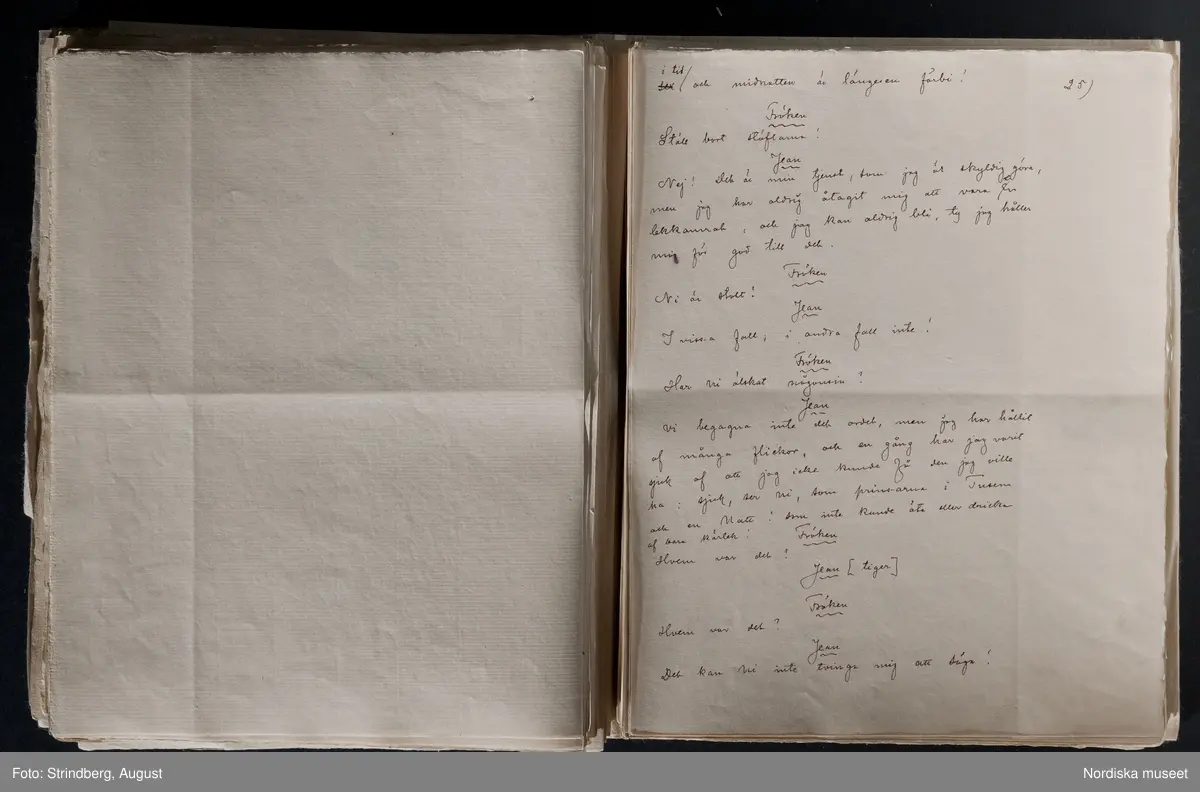 i tid
och midnatten är längesen förbi!
25)
Fröken
Ställ bort stöflarna!
Jean
Nej! Det är min tjenst, som jag är skyldig göra,
men jag har aldrig åtagit mig att vara Er
lekkamrat, och jag kan aldrig bli, ty jag håller
mig för god till det.
Fröken
Ni är stolt!
Jean
I vissa fall; i andra fall inte!
Fröken
Har ni älskat någonsin?
Jean
Vi begagna inte det ordet, men jag har hållit
af många flickor, och en gång har jag varit
sjuk af att jag icke kunde få den jag ville
ha: sjuk, ser ni, som prinsarna i Tusen
och en Natt! som inte kunde äta eller dricka
af bara kärlek!
Fröken
Hvem var det?
Jean [tiger]
Fröken
Hvem var det?
Jean
Det kan ni inte tvinga mig att säga!
Foto: Strindberg, August
Nordiska museet